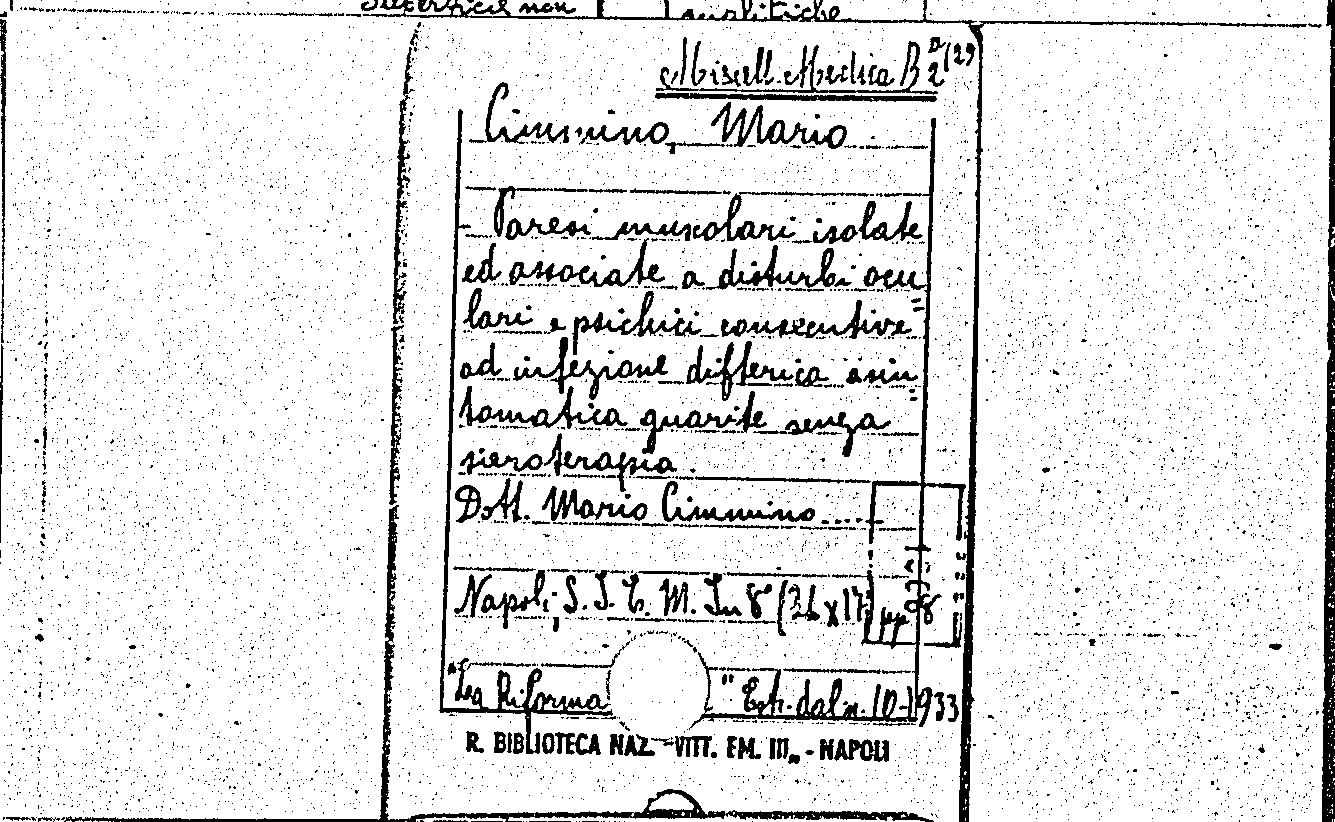 Superficie non
Miscell. Medica B 2 (29
Cimmino, Mario
- Paresi muscolari isolate
ed associate a disturbi ocu=
lari e psichici consecutive
ad infezione difterica asin=
tomatica guarite senza
sieroterapia.
Dott. Mario Cimmino.....
Napoli, S. I. E. M. In 8° (24 x 17) pp 8
"La Riforma " Estr. dal n. 10-1933
R. BIBLIOTECA NAZ. "VITT. EM. III„ - NAPOLI